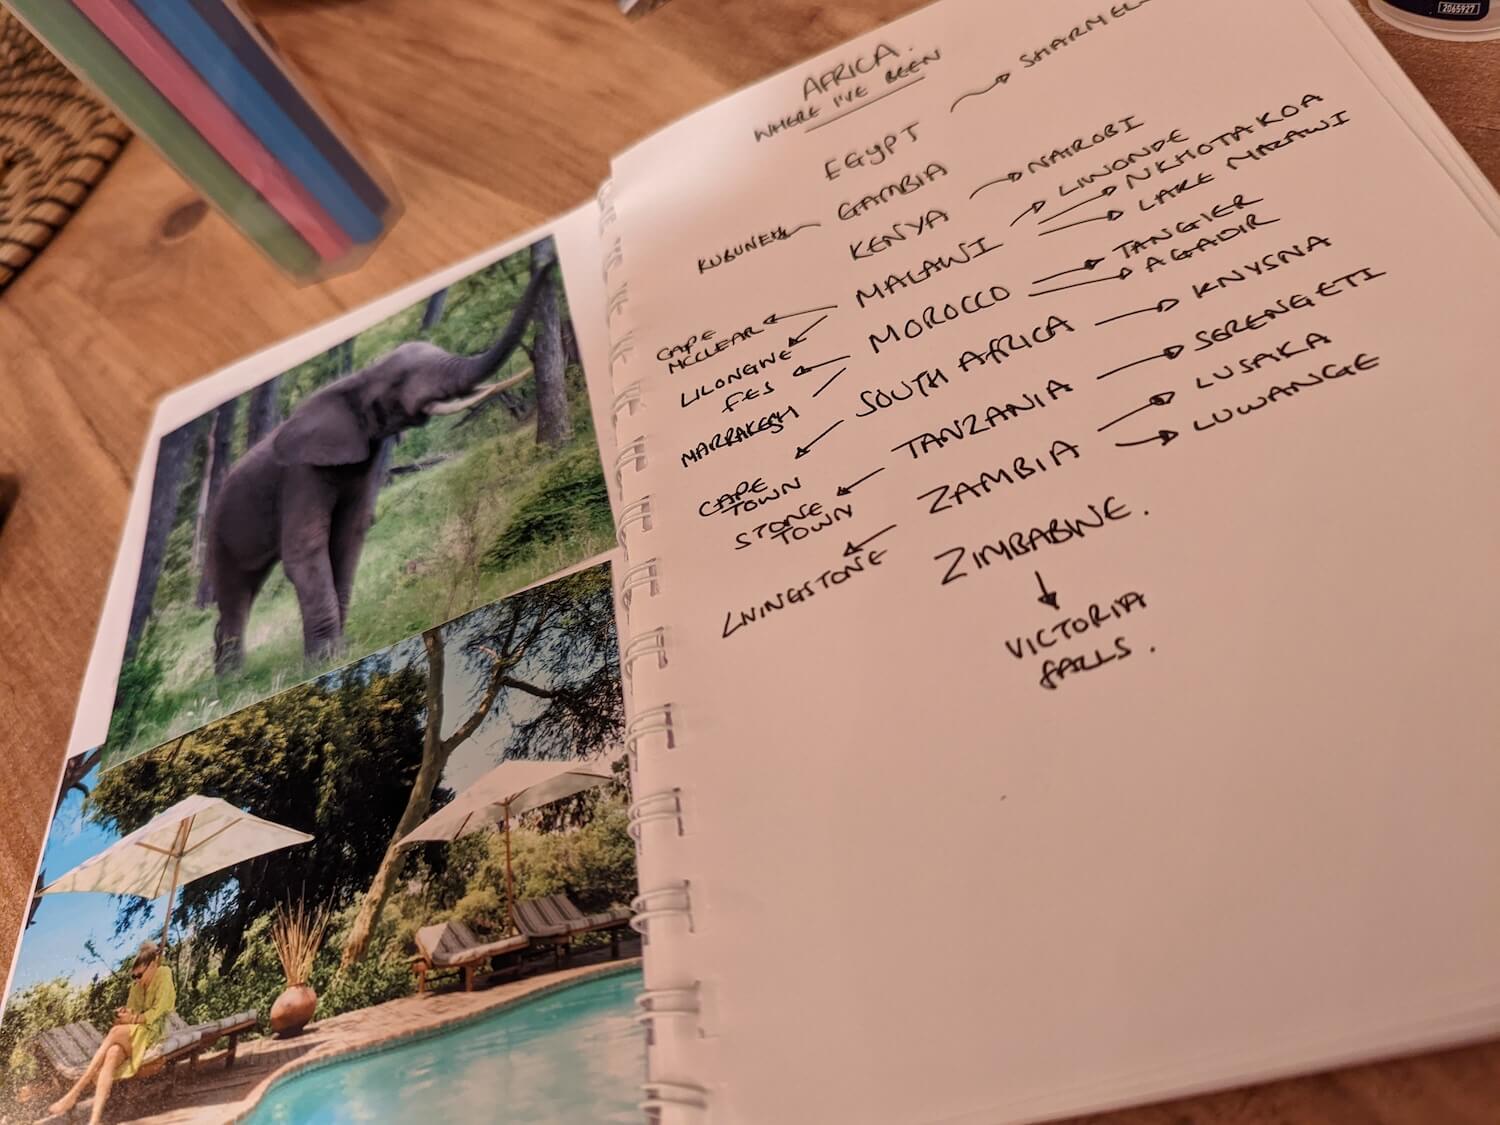 2065927
AFRICA.
WHERE I'VE BEEN
EGYPT
SHARM EL
GAMBIA
KUBUNEH
KENYA
NAIROBI
MALAWI
LIWONDE
NKHOTAKOA
LAKE MALAWI
CAPE
MCCLEAR
LILONGWE
MOROCCO
TANGIER
AGADIR
FES
MARRAKESH
SOUTH AFRICA
KNYSNA
CAPE
TOWN
TANZANIA
SERENGETI
STONE
TOWN
ZAMBIA
LUSAKA
LUWANGE
LIVINGSTONE
ZIMBABWE.
VICTORIA
FALLS.